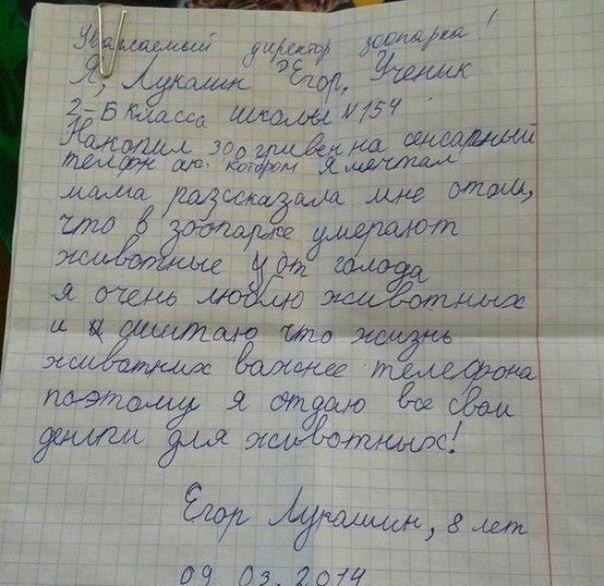 Уважаемый директор зоопарка!
Я, Лукашин Егор, Ученик
2-Б класса школы №154
Накопил 300 гривен на сенсарный
телфон о котором я мечтал
мама разссказала мне отом,
что в зоопарке умерают
животные от голода
я очень люблю животных
и сшитаю что жизнь
животних важнее телефона
поэтому я отдаю все свои
деньги для животных!
Егор Лукашин, 8 лет
09 03. 2014